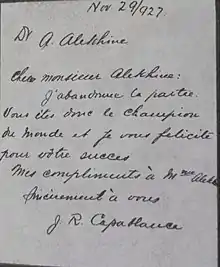 Nov 29/927.
Dr A. Alekhine.
Cher monsieur Alekhine:
J'abandonne la partie.
Vous êtes donc le champion
du monde et je vous felicite
pour vôtre succes
Mes compliments à Mme
Sincèrement à vous
J. R. Capablanca